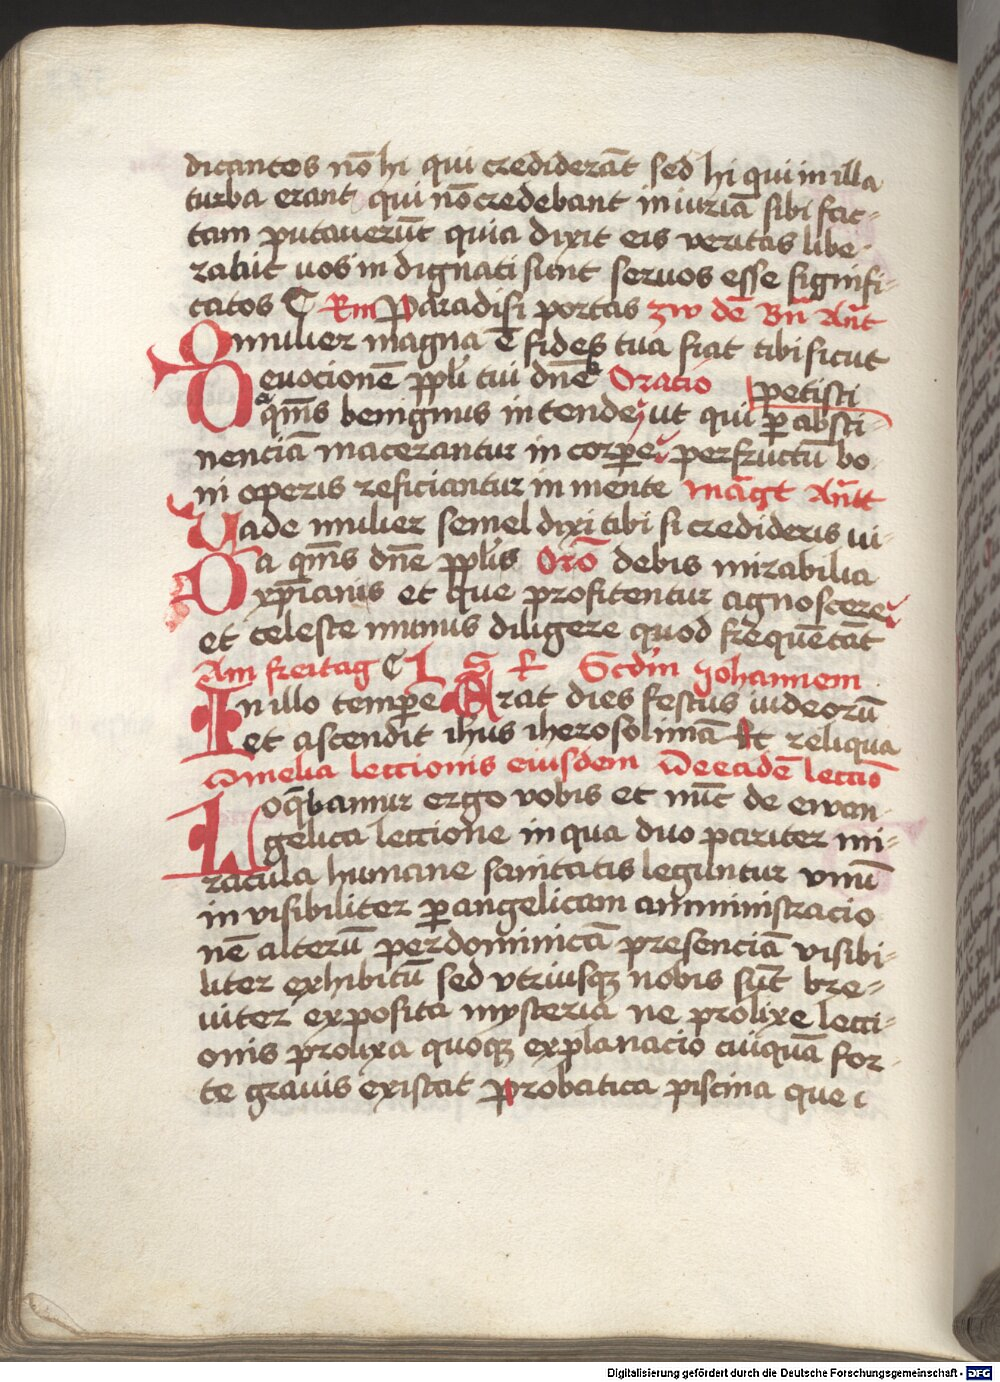 dicantes nō hi qui crediderāt sed hi qui in illa
turba erant qui nō credebant iniuriā sibi fac-
tam putaverūt quia dixit eis veritas libe-
rabit uos indignati sunt servos esse signifi-
catos Rm Paradisi portas zw dē Bn̄ An̄t
O mulier magna ē fides tua fiat tibi sicut
petisti
Deuocionē ppl̄i tui dn̄e Oracio
qm̄s benignus intende ut qui p̄ absti-
nenciā macerantur in corpe per fructū bo-
ni operis reficiantur in mente magt An̄t
Vade mulier semel dixi tibi si credideris ui-
Da qm̄s dn̄e ppl̄is Orō debis mirabilia
xp̄ianis et que profitentur agnoscere
et celeste munus diligere quod frequētāt
Am freitag Scdm Johannem
In illo tempe Erat dies festus iudeorū
et ascendit ihus iherosolimā Et reliqua
Omelia leccionis eiusdem De eadē leccio
Loq̄bamur ergo vobis et nūc de ewan-
gelica leccione in qua duo pariter mi-
racula humane sanitatis leguntur vnū
in visibiliter p̄ angelicam amministracio
nē alterū per dominicā presenciā visibi-
liter exhibitū sed vtriusq; nobis sūt bre-
uiter exposita mysteria ne prolixe lecci-
onis prolixa quoq; explanacio cuiquā for-
te grauis existat Probatica piscina que i
Digitalisierung gefördert durch die Deutsche Forschungsgemeinschaft - DFG